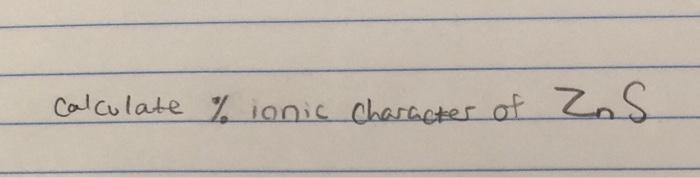 Calculate % ionic character of ZnS